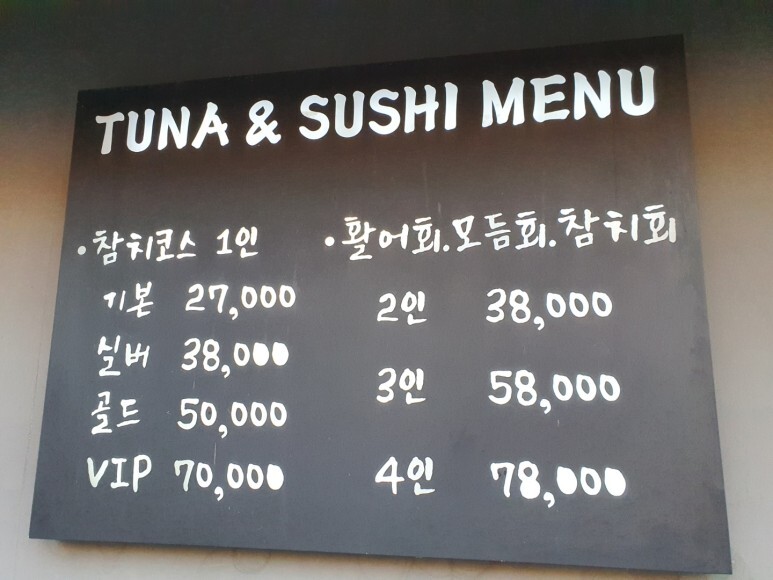 TUNA & SUSHI MENU
• 참치코스 1인
기본 27,000
실버 38,000
골드 50,000
VIP 70,000
• 활어회.모듬회.참치회
2인 38,000
3인 58,000
4인 78,000